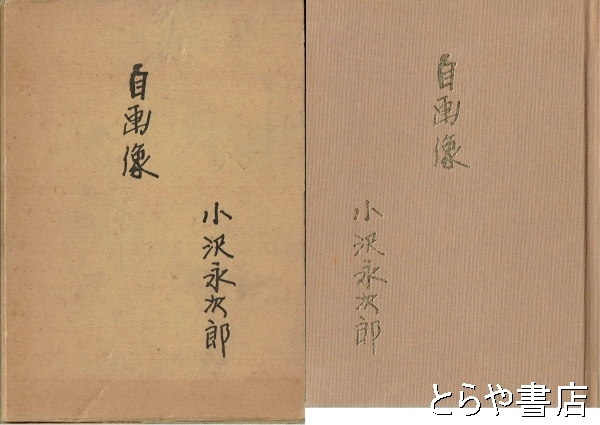 自画像
小沢永次郎
自画像
小沢永次郎
とらや書店